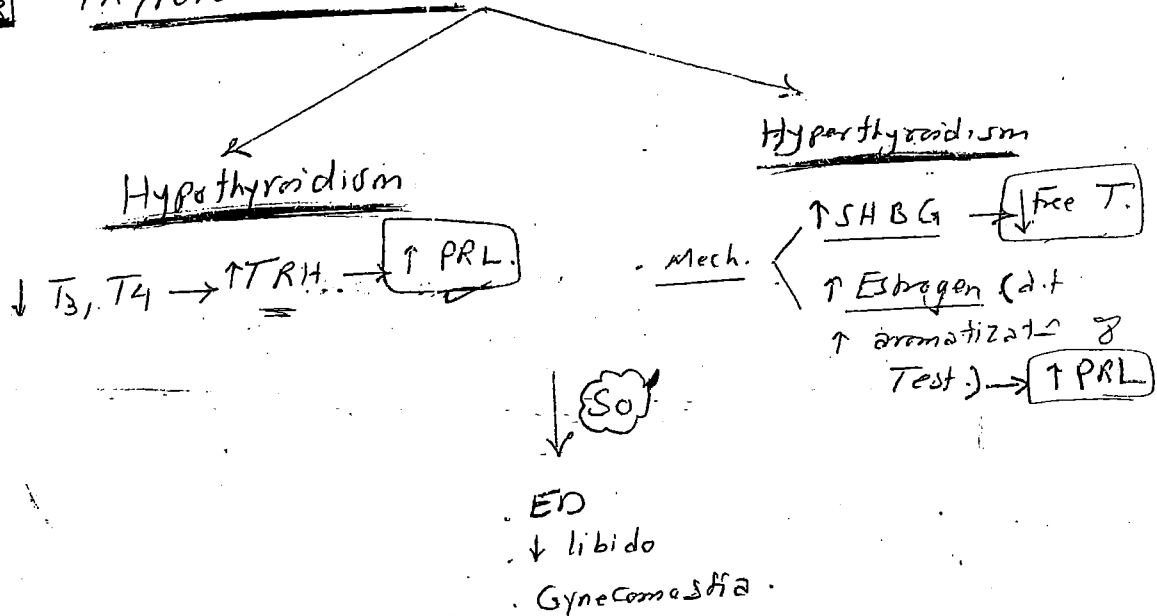 Hypothyroidism
↓ T3, T4 → ↑TRH → ↑ PRL.
Hyperthyroidism
. Mech.
↑ SHBG → ↓ Free T.
↑ Estrogen (d.t
↑ aromatizat
Test.) → ↑ PRL
So
. ED
. ↓ libido
. Gynecomastia .